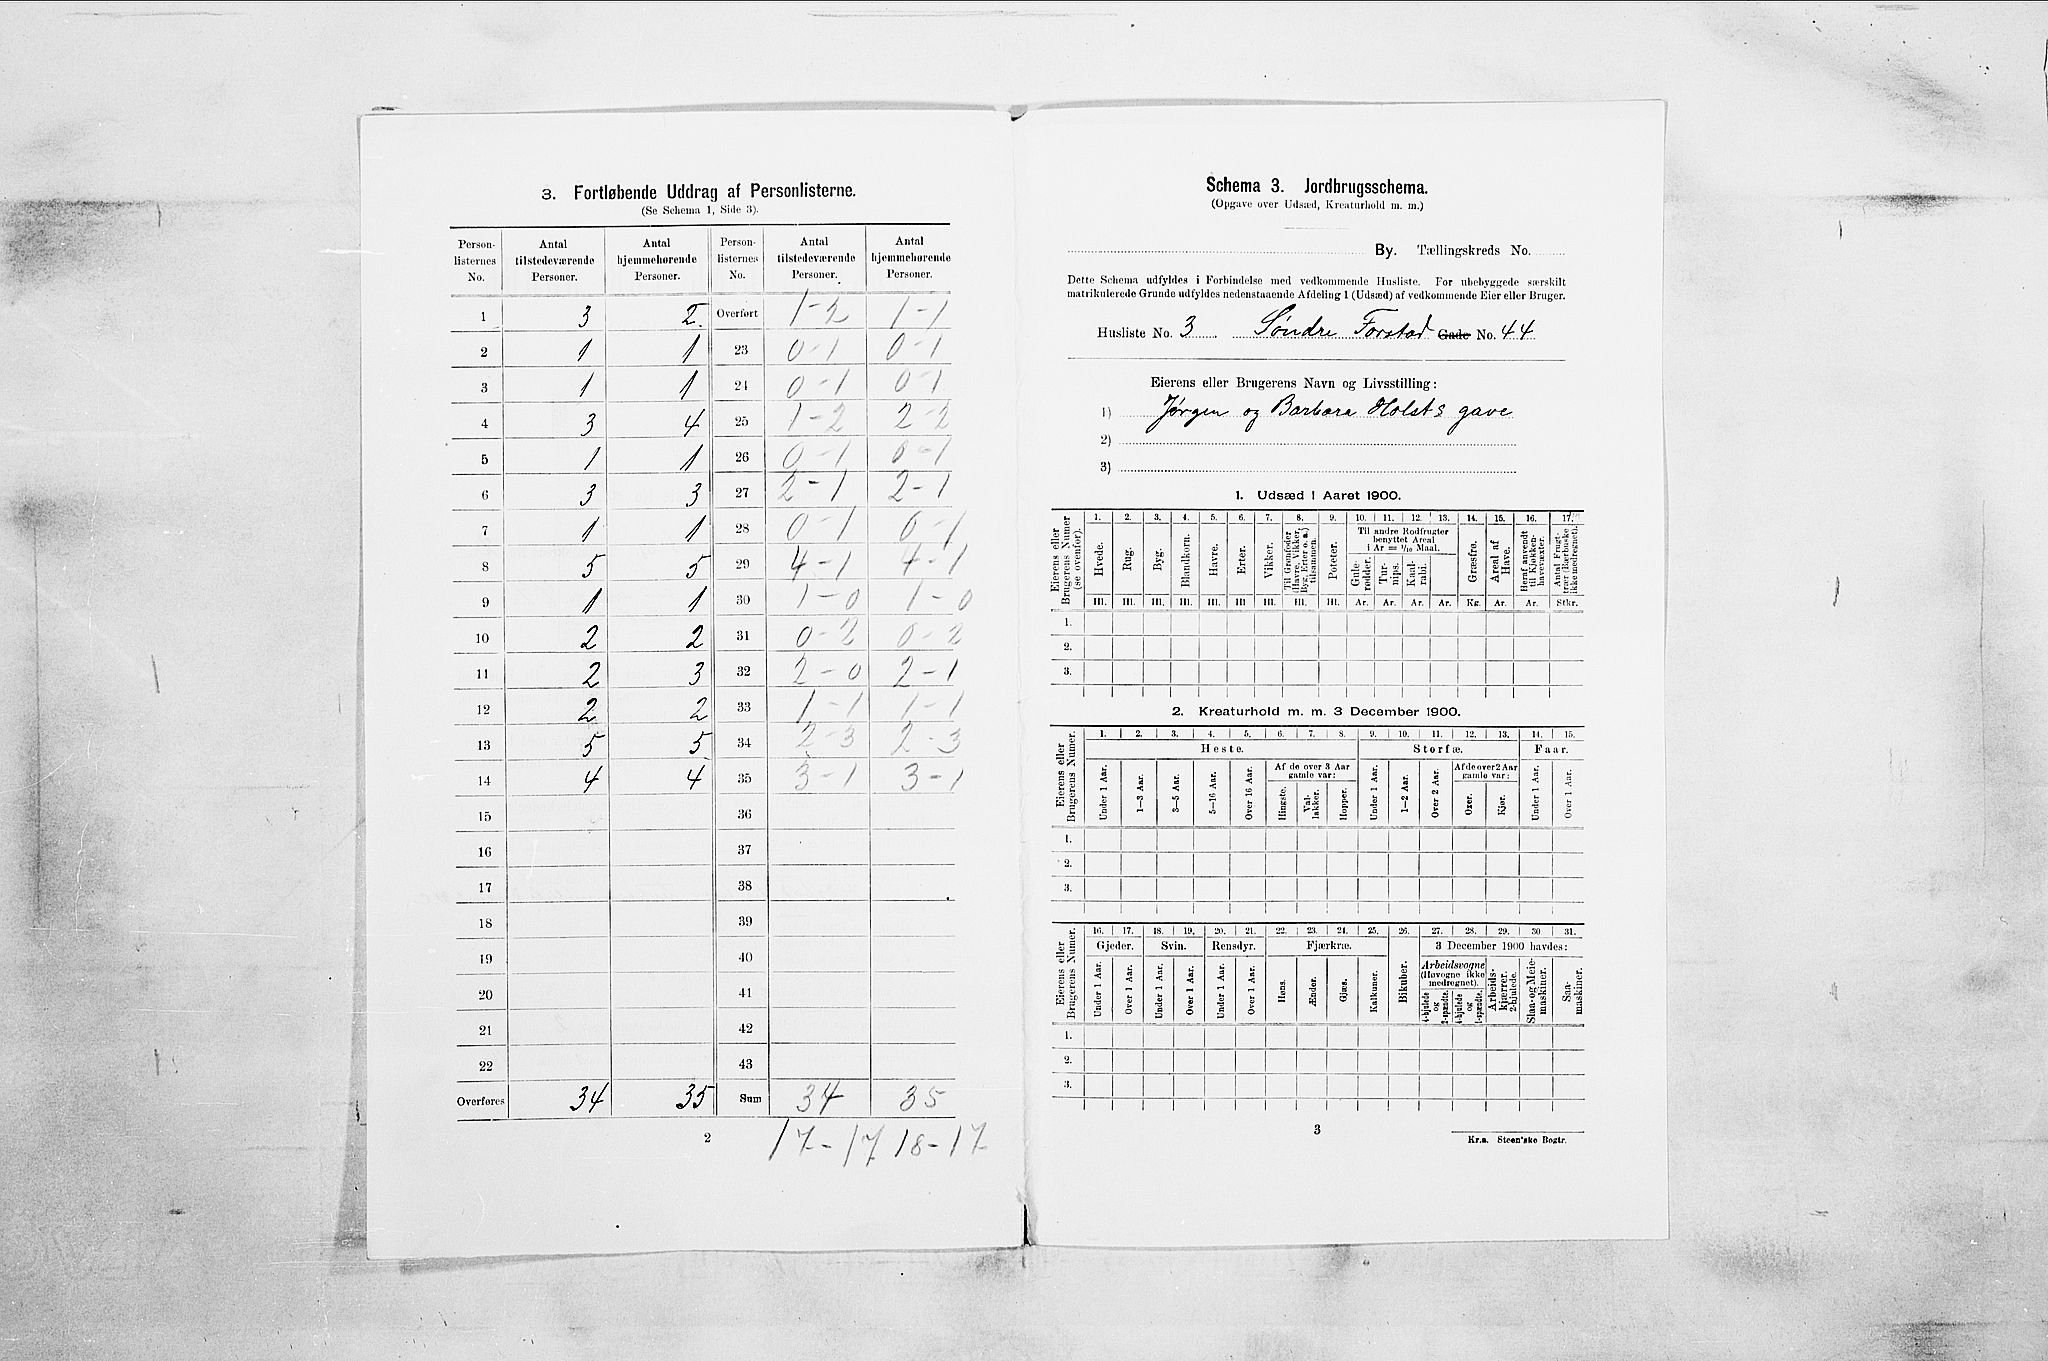 3. Fortløbende Uddrag af Personlisterne.
(Se Schema 1, Side 3).
Person-listernes No. | Antal tilstedeværende Personer. | Antal hjemmehørende Personer. | Person-listernes No. | Antal tilstedeværende Personer. | Antal hjemmehørende Personer.
1 | 3 | 2 | Overført | 1-2 | 1-1
2 | 1 | 1 | 23 | 0-1 | 0-1
3 | 1 | 1 | 24 | 0-1 | 0-1
4 | 3 | 4 | 25 | 1-2 | 2-2
5 | 1 | 1 | 26 | 0-1 | 0-1
6 | 3 | 3 | 27 | 2-1 | 2-1
7 | 1 | 1 | 28 | 0-1 | 0-1
8 | 5 | 5 | 29 | 4-1 | 4-1
9 | 1 | 1 | 30 | 1-0 | 1-0
10 | 2 | 2 | 31 | 0-2 | 0-2
11 | 2 | 3 | 32 | 2-0 | 2-1
12 | 2 | 2 | 33 | 1-1 | 1-1
13 | 5 | 5 | 34 | 2-3 | 2-3
14 | 4 | 4 | 35 | 3-1 | 3-1
15 | | | 36
16 | | | 37
17 | | | 38
18 | | | 39
19 | | | 40
20 | | | 41
21 | | | 42
22 | | | 43
Overføres | 34 | 35 | Sum | 34 | 35
17-17 18-17
2
Schema 3. Jordbrugsschema.
(Opgave over Udsæd, Kreaturhold m. m.)
By. Tællingskreds No.
Dette Schema udfyldes i Forbindelse med vedkommende Husliste. For ubebyggede særskilt
matrikulerede Grunde udfyldes nedenstaaende Afdeling 1 (Udsæd) af vedkommende Eier eller Bruger.
Husliste No. 3 Søndre Forstad Gade No. 44
Eierens eller Brugerens Navn og Livsstilling:
1) Jørgen og Barbara Holsts gave
2)
3)
1. Udsæd i Aaret 1900.
Eierens eller Brugerens Numer (se ovenfor).
1. | 2. | 3. | 4. | 5. | 6. | 7. | 8. | 9. | 10. | 11. | 12. | 13. | 14. | 15. | 16. | 17.
Til andre Rodfrugter benyttet Areal i Ar = 1/10 Maal.
Hvede. | Rug. | Byg. | Blandkorn. | Havre. | Erter. | Vikker. | Til Grønfoder (Havre, Vikker, Byg, Erter o. a.) tilsammen. | Poteter. | Gulerødder. | Turnips. | Kaalrabi. | | Græsfrø. | Areal af Have. | Heraf anvendt til Kjøkkenhavevæxter. | Antal Frugttrær (Bærbuske ikke medregnet).
Hl. | Hl. | Hl. | Hl. | Hl. | Hl. | Hl. | Hl. | Hl. | Ar. | Ar. | Ar. | Ar. | Kg. | Ar. | Ar. | Stkr.
1.
2.
3.
2. Kreaturhold m. m. 3 December 1900.
Eierens eller Brugerens Numer.
1. | 2. | 3. | 4. | 5. | 6. | 7. | 8. | 9. | 10. | 11. | 12. | 13. | 14. | 15.
Heste. | Storfæ. | Faar.
Af de over 3 Aar gamle var: | Af de over 2 Aar gamle var:
Under 1 Aar. | 1—3 Aar. | 3—5 Aar. | 5—16 Aar. | Over 16 Aar. | Hingste. | Vallakker. | Hopper. | Under 1 Aar. | 1—2 Aar. | Over 2 Aar. | Oxer. | Kjør. | Under 1 Aar. | Over 1 Aar.
1.
2.
3.
Eierens eller Brugerens Numer.
16. | 17. | 18. | 19. | 20. | 21. | 22. | 23. | 24. | 25. | 26. | 27. | 28. | 29. | 30 | 31.
Gjeder. | Svin. | Rensdyr. | Fjærkræ. | 3 December 1900 havdes:
Arbeidsvogne (Høvogne ikke medregnet).
Under 1 Aar. | Over 1 Aar. | Under 1 Aar. | Over 1 Aar. | Under 1 Aar. | Over 1 Aar. | Høns. | Ænder. | Gjæs. | Kalkuner. | Bikuber. | 4-hjulede og 2-spændte. | 4-hjulede og 1-spændte. | Arbeidskjærrer. 2-hjulede. | Slaa- og Meiemaskiner. | Saamaskiner.
1.
2.
3.
3
Kr.a. Steen'ske Bogtr.